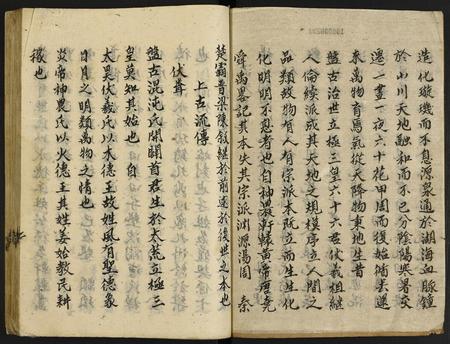 造化璇璣而不息源泉通於湖海血脉鍾
於山川天地融和而不已分陰陽與暑交
遷一晝一夜六十花甲周而復始循去還
來萬物育焉氣從天降物東地生昔
盤古治世立極三皇六十六君伏羲祖継
人倫續派或其天地之規模序立人間之
品類故物有人有宗派本既立而生生化
化明明不忽者也自神農軒轅黃帝唐堯
舜禹畧記其本失其宗派渊源湯周 秦
楚霸晉梁陳叙継於前遂於後世之本也
上古流傳
伏羲
盤古混沌氏開闢首君生於太荒立極三
皇莫知其始也 自
太昊伏羲氏以木德王故姓風有聖德象
日月之明類萬物之情也
炎帝神農氏以火德王其姓姜始教民耕
稼也